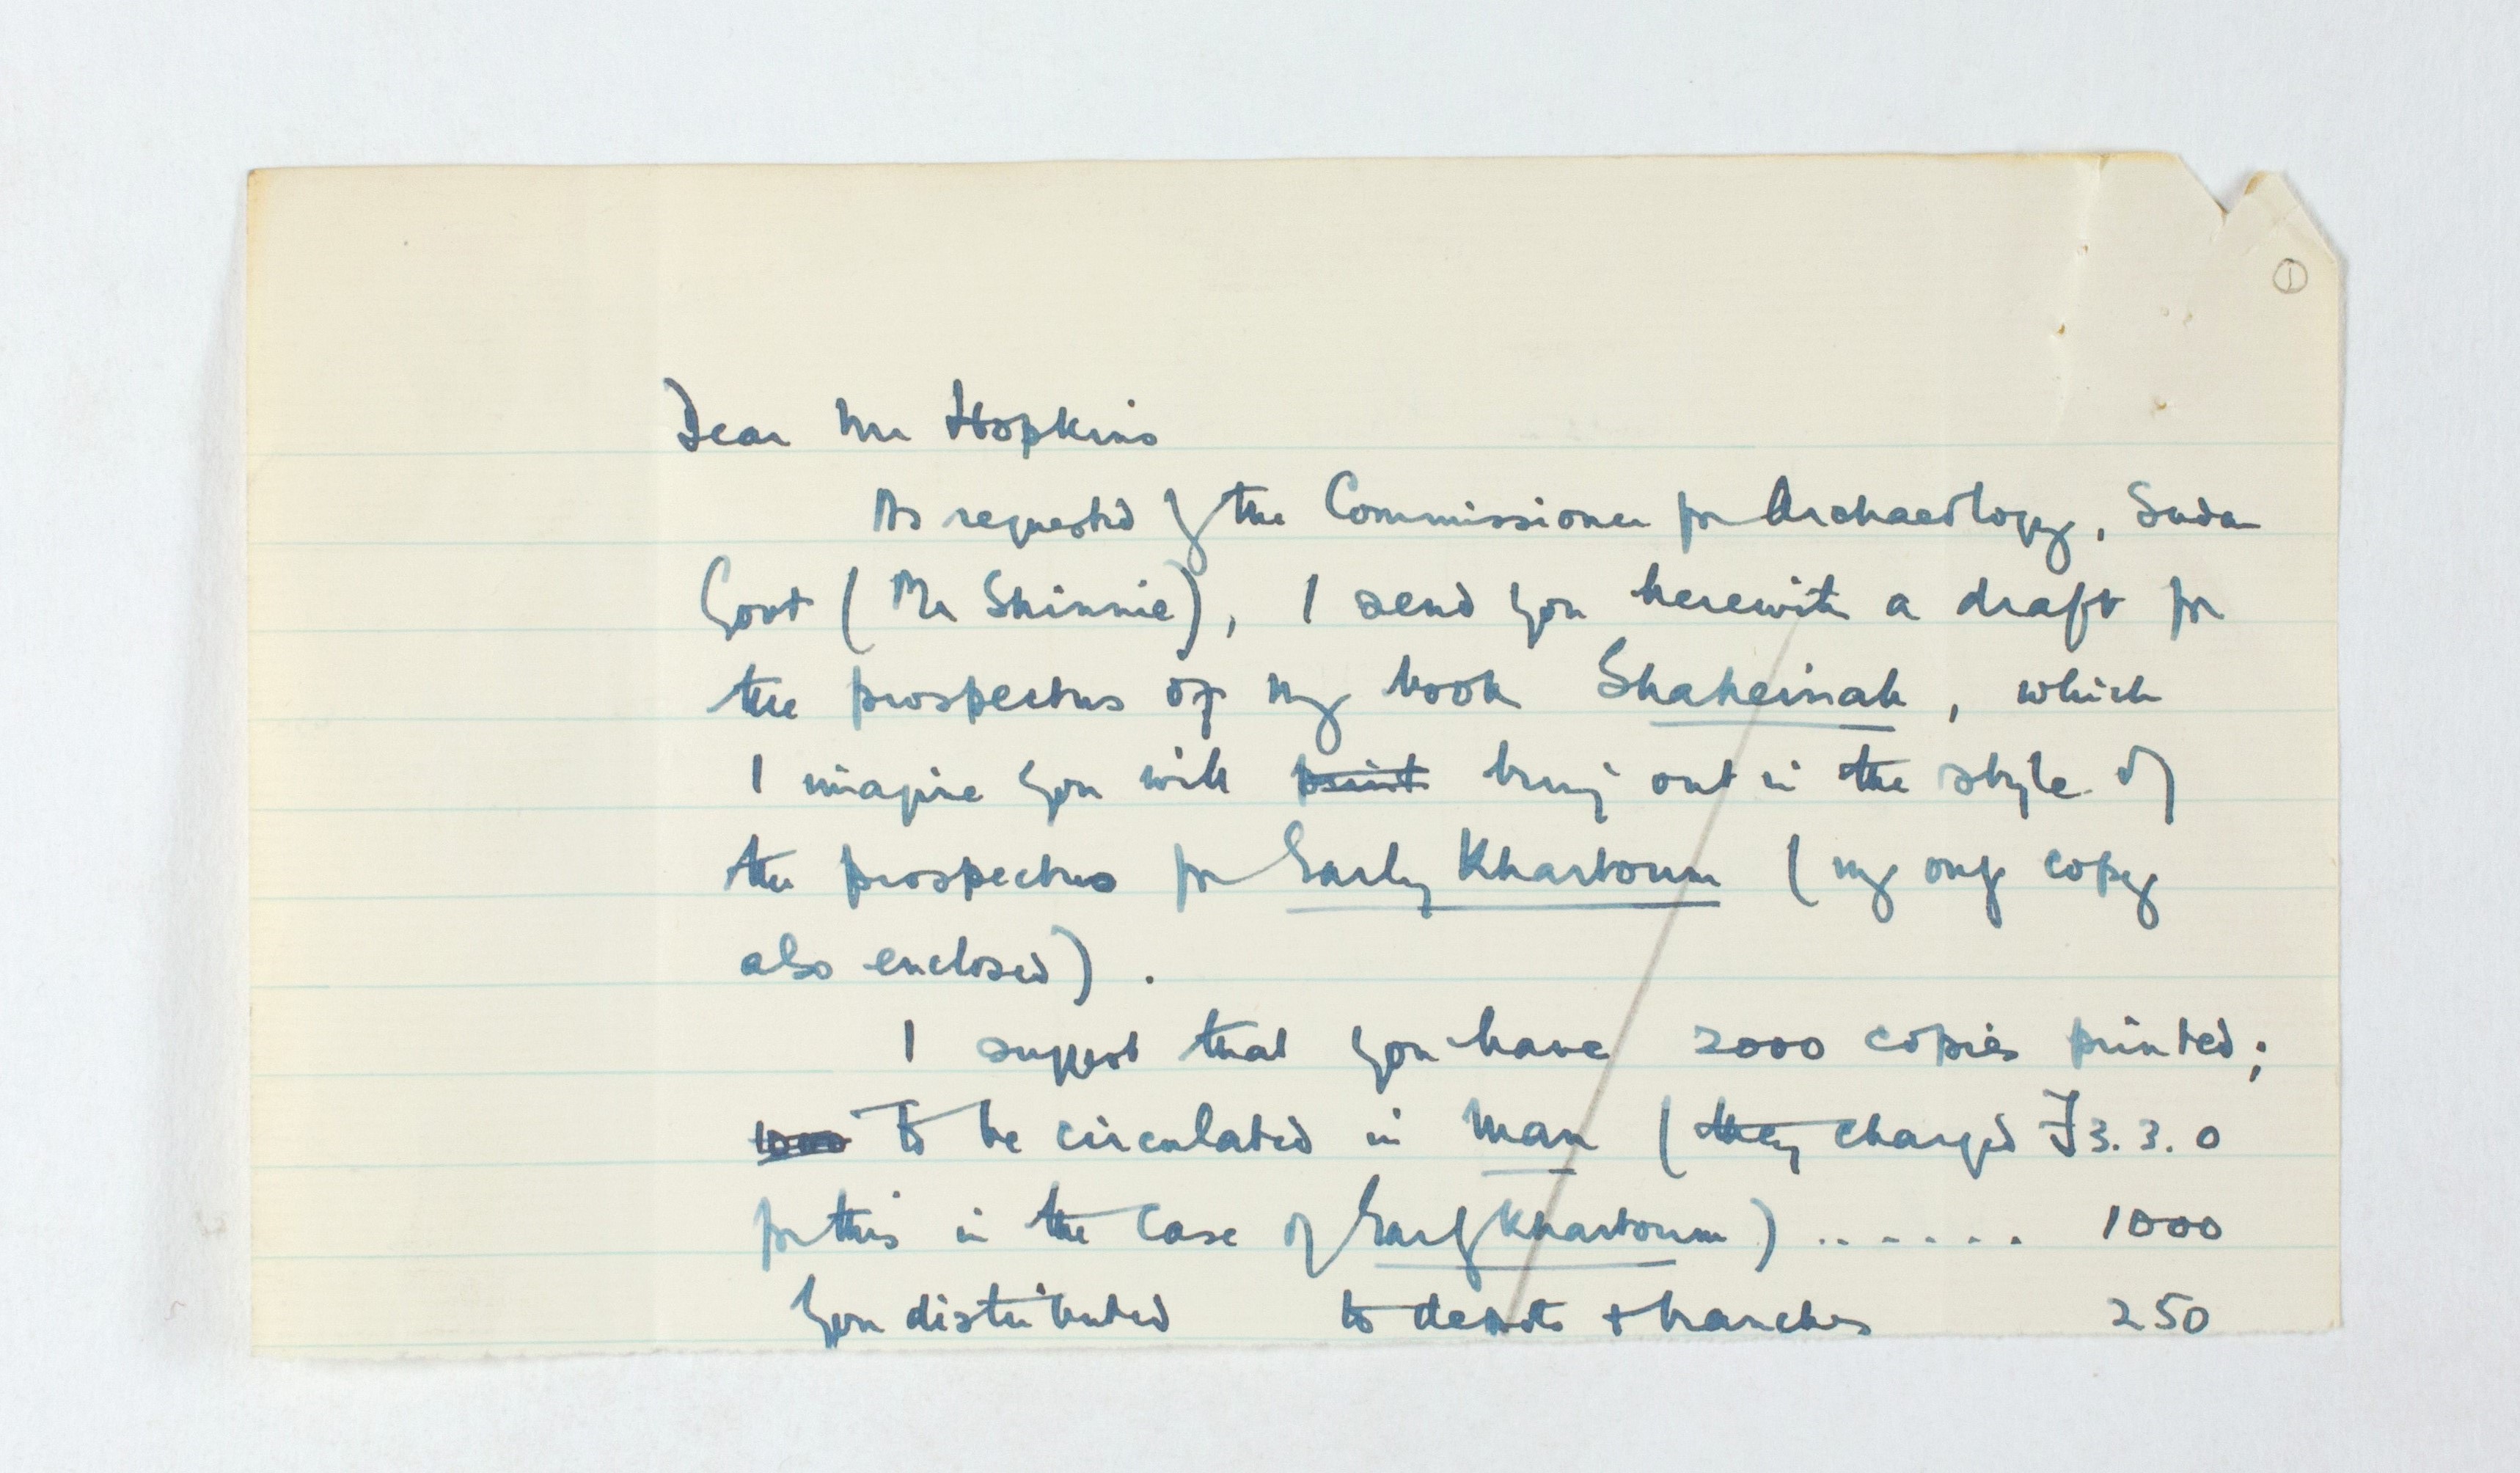 ①
Dear Mr Hopkins
As requested by the Commissioner for Archaeology, Sudan
Govt (Mr Shinnie), I send you herewith a draft for
the prospectus of my book Shaheinab, which
I imagine you will print bring out in the style of
the prospectus for Early Khartoum (my only copy
also enclosed).
I suggest that you have 2000 copies printed;
1000 To be circulated in Man (they charged £3.3.0
for this in the case of Early Khartoum) ...... 1000
You distributed to depots + branches 250